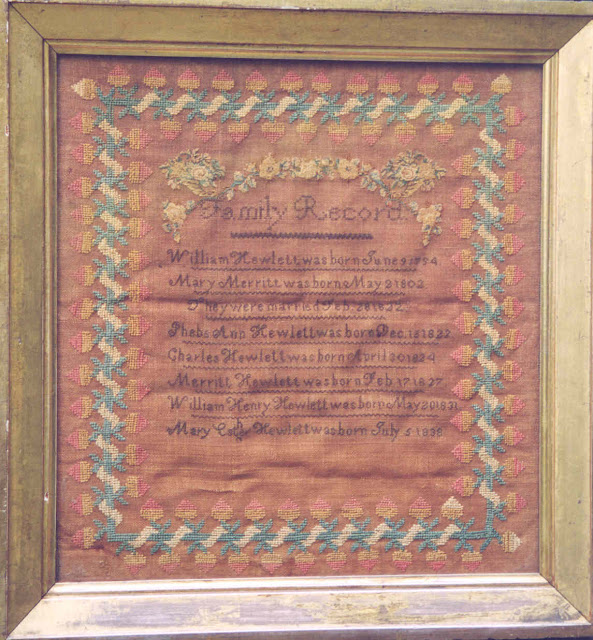 Family Record
William Hewlett was born June 9 1794
Mary Merritt was born May 2 1802
They were married Feb. 26 1822
Phebe Ann Hewlett was born Dec. 15 1822
Charles Hewlett was born April 20 1824
Merritt Hewlett was born Feb 17 1827
William Henry Hewlett was born May 20 1831
Mary Hewlett was born July 5 1836